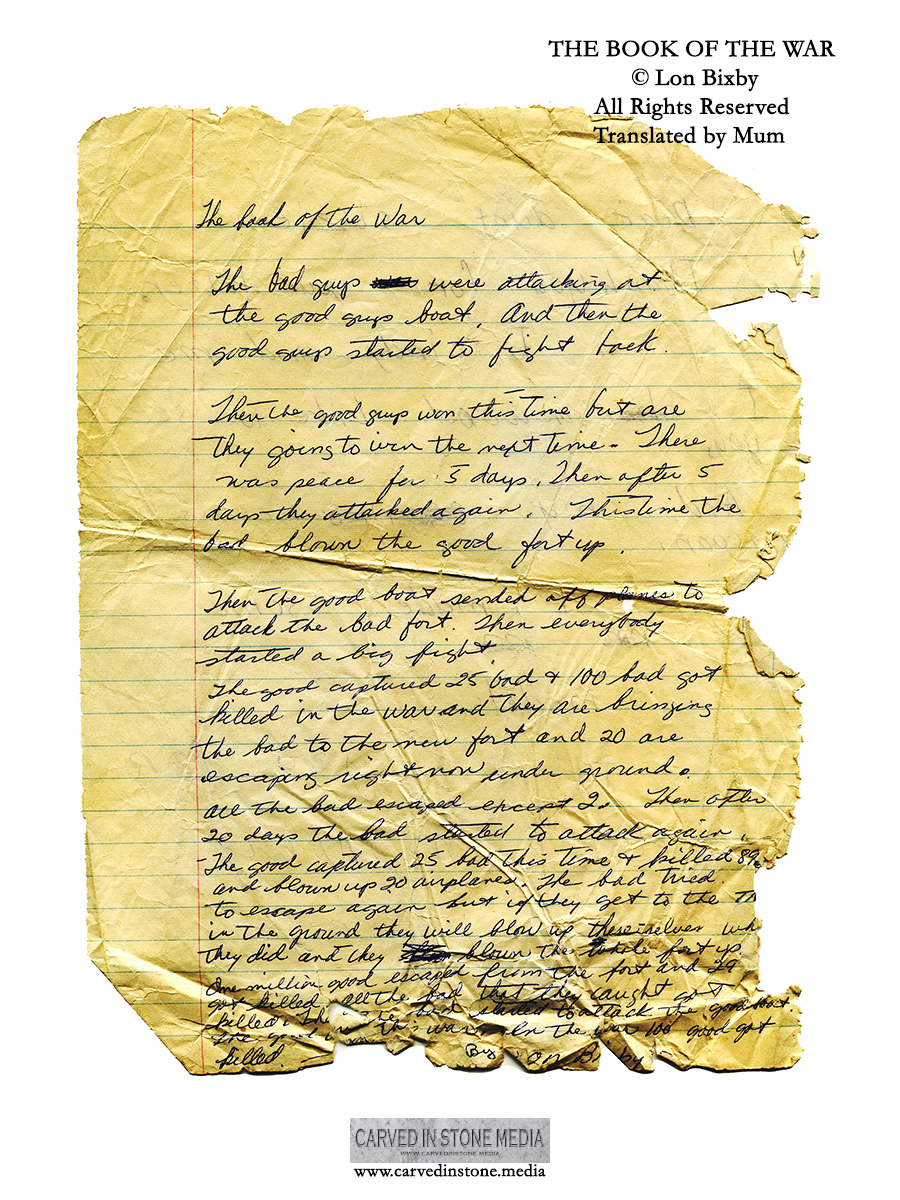 THE BOOK OF THE WAR
© Lon Bixby
All Rights Reserved
Translated by Mum
The book of the War
The bad guys were attacking at
the good guys boat. And then the
good guys started to fight back.
Then the good guys won this time but are
they going to win the next time. There
was peace for 5 days. Then after 5
days they attacked again. This time the
bad blown the good fort up.
Then the good boat sended off planes to
attack the bad fort. Then everybody
started a big fight.
The good captured 25 bad & 100 bad got
killed in the war and they are bringing
the bad to the new fort and 20 are
escaping right now under ground.
All the bad escaped except 2. Then after
20 days the bad started to attack again.
The good captured 25 bad this time & killed 89
and blown up 20 airplanes. The bad tried
to escape again but if they get to the
in the ground they will blow up theirselves
they did and they blown the whole fort up
One million good escaped from the fort and 29
got killed. All the bad that they caught got
killed. the bad started to attack the good boat.
The good this war. In the war 100 good got
killed.
By on Bixby
CARVED IN STONE MEDIA
WWW.CARVEDINSTONE.MEDIA
www.carvedinstone.media